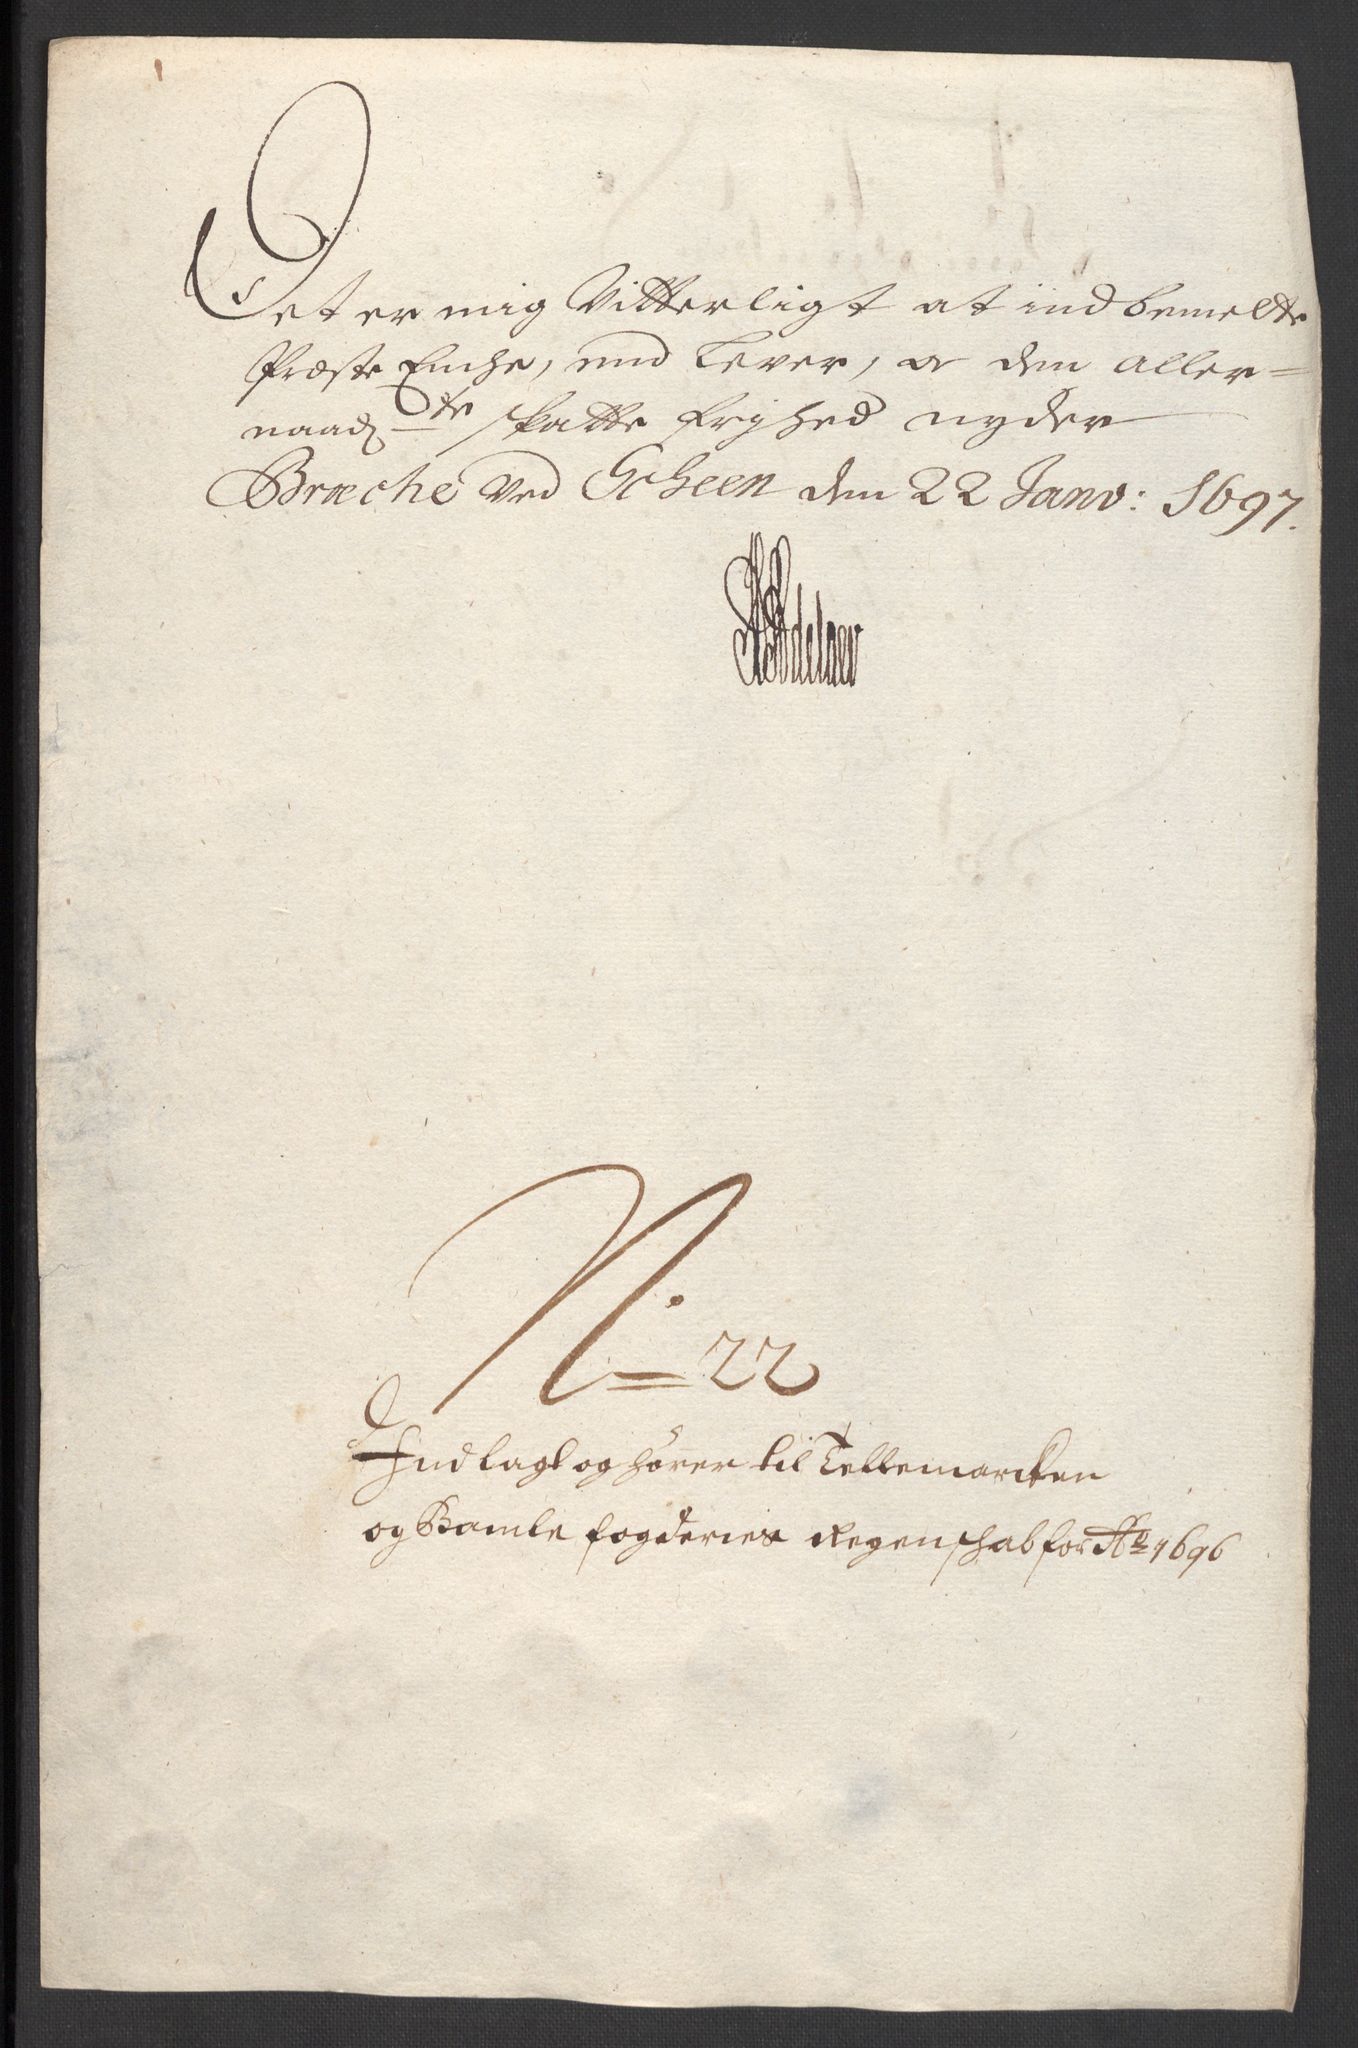 Det er mig Vitterligt at indbemelte
Præste Enche, end lever, og den aller=
naadste skatte frihed nyder
Bræche ved Scheen den 22 Janv: 1697.
Adelaer
No 22
Indlagt og hører til Tellemarcken
og Bamle fogderies Regenskab for Ao 1696